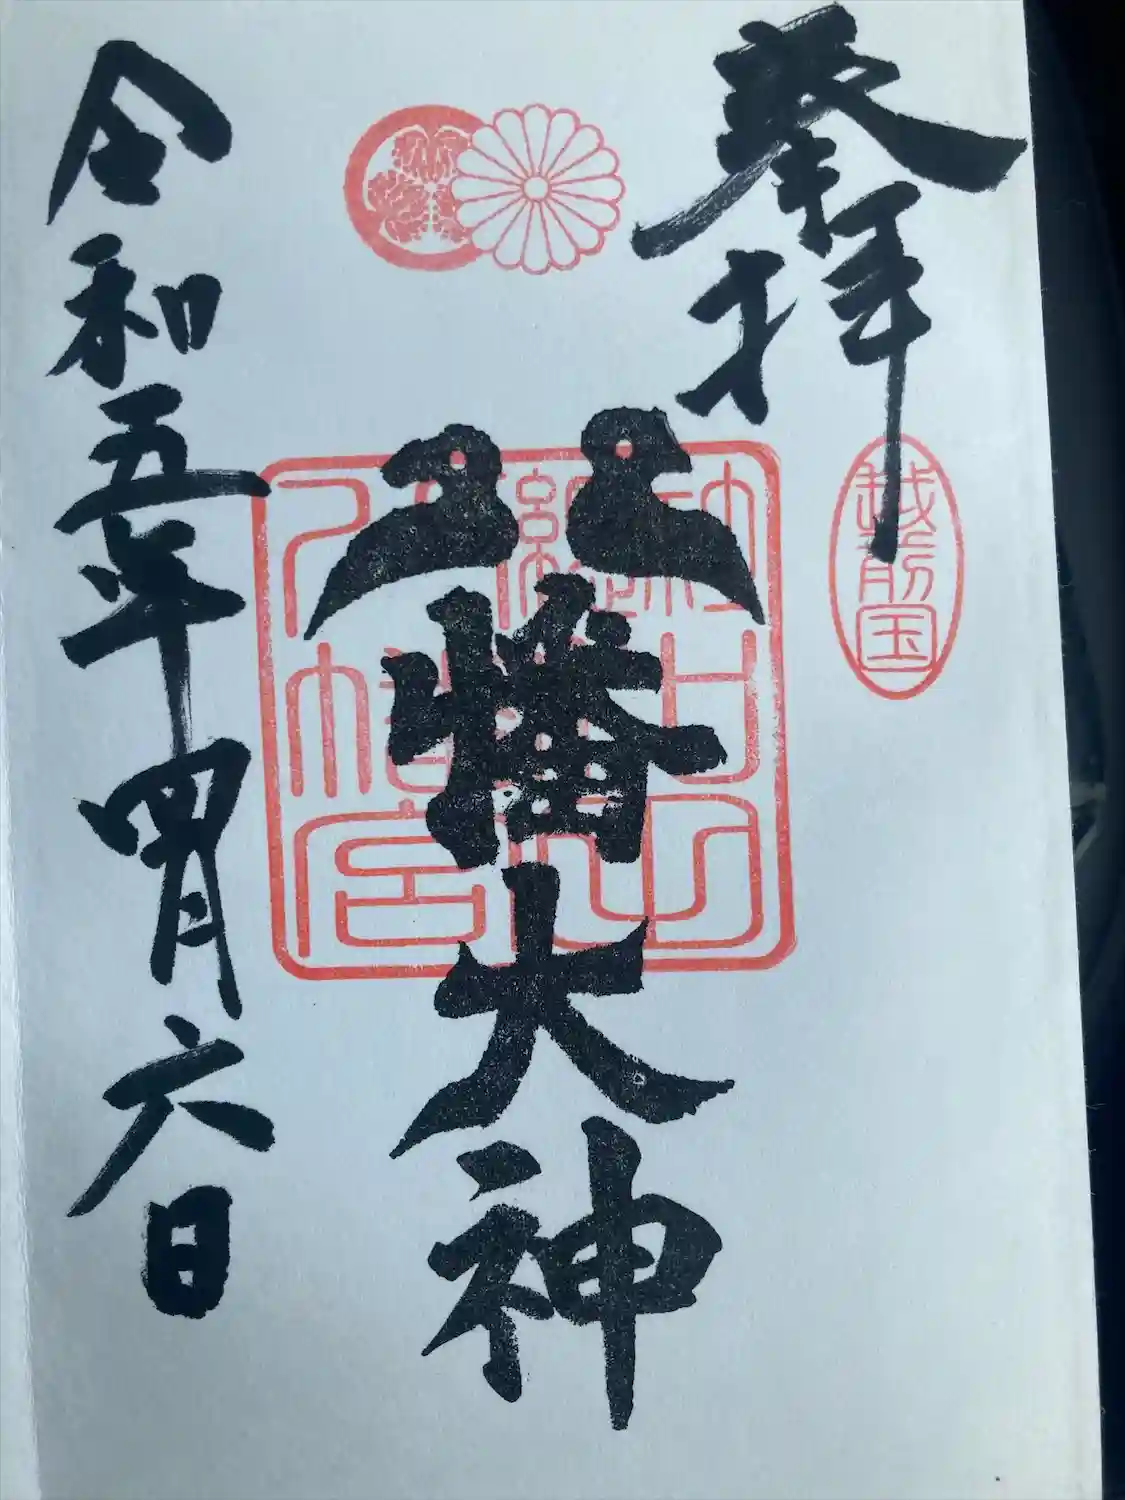 奉拝
越前国
八幡大神
八幡宮
令和五年四月六日